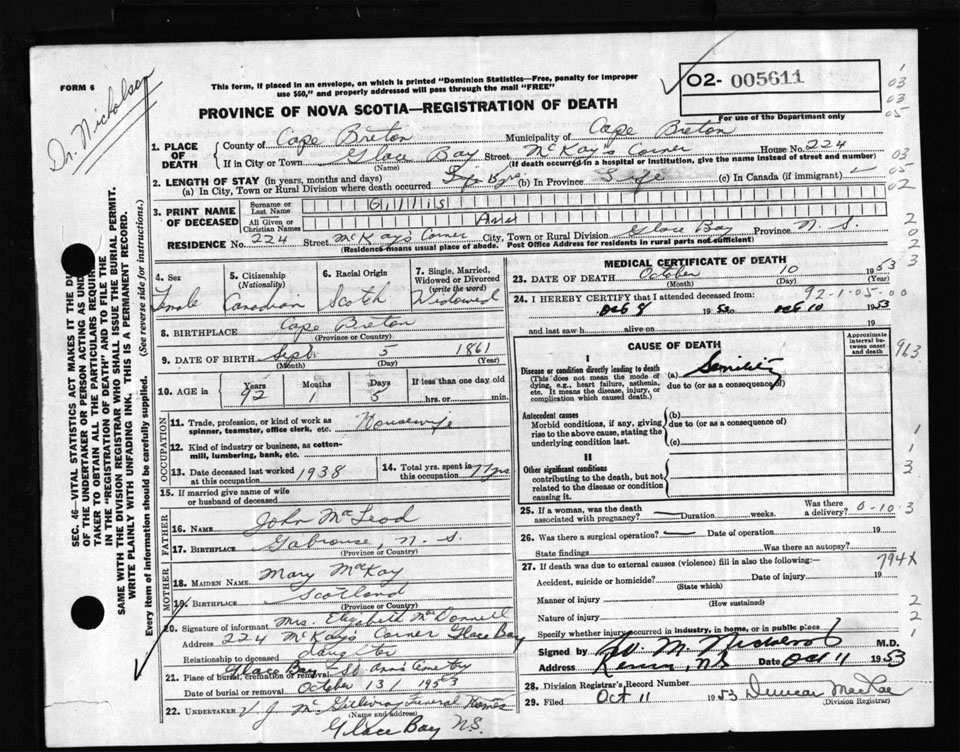 FORM 6
Dr. Nicholson
This form, if placed in an envelope, on which is printed "Dominion Statistics—Free, penalty for improper
use $50," and properly addressed will pass through the mail "FREE"
02- 005611
For use of the Department only
PROVINCE OF NOVA SCOTIA—REGISTRATION OF DEATH
1. PLACE OF DEATH
County of Cape Breton Municipality of Cape Breton
If in City or Town Glace Bay Street McKay's Corner House No. 224
(Name) (If death occurred in a hospital or institution, give the name instead of street and number)
2. LENGTH OF STAY (in years, months and days)
(a) In City, Town or Rural Division where death occurred (b) In Province Life (c) In Canada (if immigrant)
3. PRINT NAME OF DECEASED
Surname or Last Name Gillis
All Given or Christian Names Ann
RESIDENCE No. 224 Street McKay's Corner City, Town or Rural Division Glace Bay Province N. S.
(Residence means usual place of abode. Post Office Address for residents in rural parts not sufficient)
4. Sex Female
5. Citizenship (Nationality) Canadian
6. Racial Origin Scotch
7. Single, Married, Widowed or Divorced (write the word) Widowed
8. BIRTHPLACE Cape Breton
(Province or Country)
9. DATE OF BIRTH Sept 5 1861
(Month) (Day) (Year)
10. AGE in Years Months Days If less than one day old
92 1 5 hrs. or min.
OCCUPATION
11. Trade, profession, or kind of work as spinner, teamster, office clerk, etc. Housewife
12. Kind of industry or business, as cotton-mill, lumbering, bank, etc.
13. Date deceased last worked at this occupation 1938
14. Total yrs. spent in this occupation 77yrs
15. If married give name of wife or husband of deceased
FATHER
16. NAME John McLeod
17. BIRTHPLACE Gabrouse, N. S.
(Province or Country)
MOTHER
18. MAIDEN NAME Mary McKay
19. BIRTHPLACE Scotland
(Province or Country)
20. Signature of informant Mrs. Elizabeth MacDonnell
Address 224 McKay's Corner Glace Bay
Relationship to deceased daughter
21. Place of burial, cremation or removal Glace Bay St Ann's Cemetery
Date of burial or removal October 13, 1953
22. UNDERTAKER V J McGillivray Funeral Homes
(Name and address)
Glace Bay N.S.
MEDICAL CERTIFICATE OF DEATH
23. DATE OF DEATH October 10 1953
(Month) (Day) (Year)
92-1-05-00
24. I HEREBY CERTIFY that I attended deceased from:
Oct 8 1953 to Oct 10 1953
and last saw h alive on 19
CAUSE OF DEATH
Approximate interval between onset and death
I
Disease or condition directly leading to death (a) Senility
(This does not mean the mode of dying, e.g., heart failure, asthenia, etc. It means the disease, injury, or complication which caused death.)
due to (or as a consequence of)
Antecedent causes
Morbid conditions, if any, giving rise to the above cause, stating the underlying condition last.
(b)
due to (or as a consequence of)
(c)
II
Other significant conditions
contributing to the death, but not related to the disease or condition causing it.
25. If a woman, was the death associated with pregnancy? Duration weeks. Was there a delivery?
0-10-3
26. Was there a surgical operation? Date of operation 19
State findings Was there an autopsy?
27. If death was due to external causes (violence) fill in also the following:—
794X
Accident, suicide or homicide? Date of injury 19
(State which)
Manner of injury
(How sustained)
Nature of injury
Specify whether injury occurred in industry, in home, or in public place
Signed by M.D.
Address N.S. Date Oct 11 1953
28. Division Registrar's Record Number
29. Filed Oct 11 1953 Duncan MacRae
(Division Registrar)
SEC. 46—VITAL STATISTICS ACT MAKES IT THE
OF THE UNDERTAKER OR PERSON ACTING AS
TAKER TO OBTAIN ALL THE PARTICULARS
IN THE "REGISTRATION OF DEATH" AND TO FILE THE
SAME WITH THE DIVISION REGISTRAR WHO SHALL ISSUE THE BURIAL PERMIT.
WRITE PLAINLY WITH UNFADING INK. THIS IS A PERMANENT RECORD.
Every item of information should be carefully supplied. (See reverse side for instructions.)